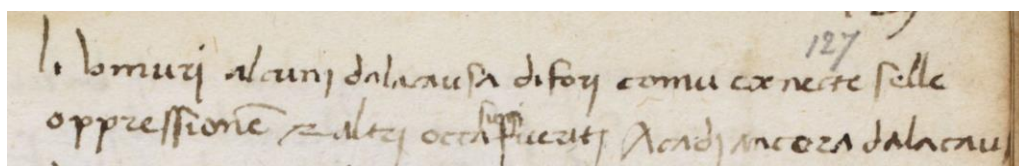 127
li homuri alcuni dala causa di fori comu ex necte selle
oppressionē & altri occa ueriti Acadi ancora dala cau